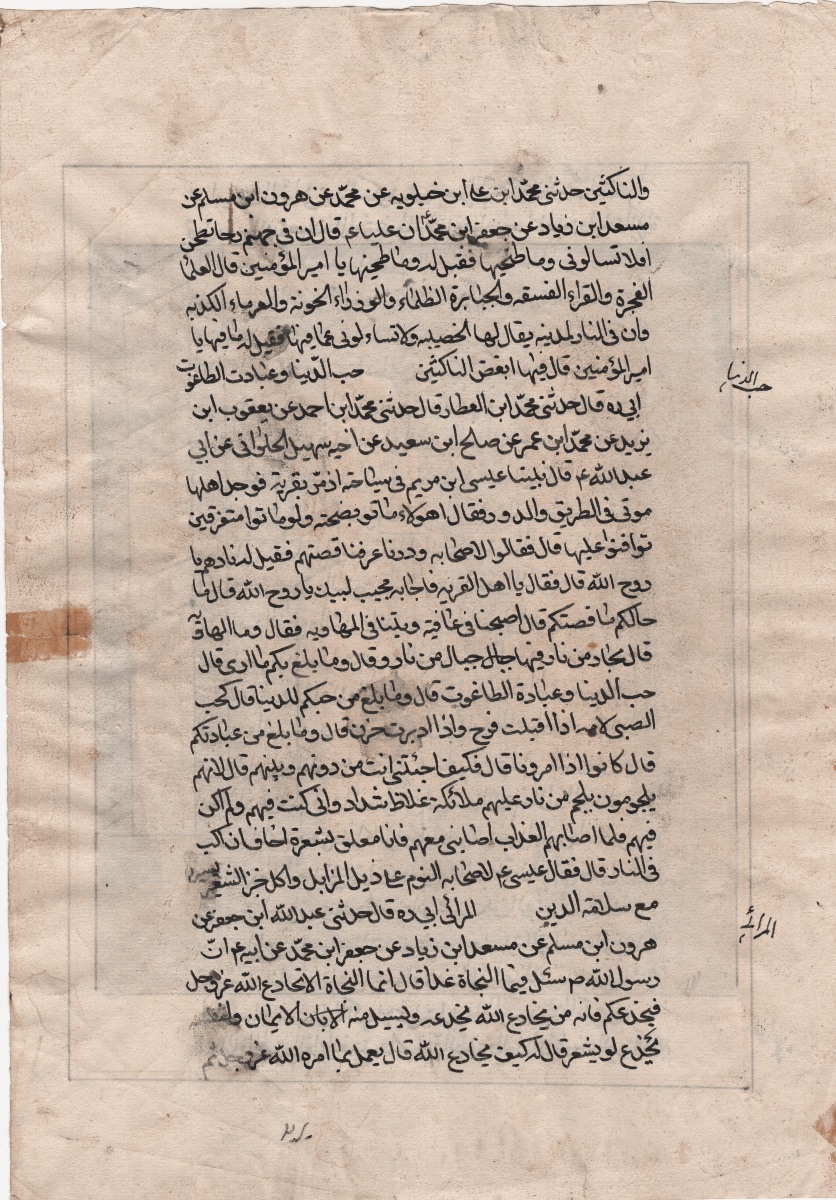 والناكثين حدثنى محمد ابن على ابن خيلويه عن محمد عن هرون ابن مسلم عن
مسعد ابن زياد عن جعفر ابن محمد ان عليا ع قال ان فى جهنم رحا تطحن
افلا تسالونى وما طحنها فقيل له وما طحينها يا امير المؤمنين قال العلما
الفجرة والقراء الفسقه والجبابرة الظلماء والوزراء الخونة والعرفاء الكذبه
وان فى النار لمدينه يقال لها الحصيبه ولا تساءلونى عما فيها فقيل له ما فيها يا
امير المؤمنين قال فيها ابغض الناكثين حب الدنيا وعبادت الطاغوت
ابى ره قال حدثنى محمد ابن العطار قال حدثنى محمد ابن احمد عن يعقوب ابن
يزيد عن محمد ابن عمر عن صالح ابن سعيد عن اخيه سهيل الحلوانى عن ابى
عبد الله ع قال بينا عيسى ابن مريم فى سياحته اذ مر بقرية فوجد اهلها
موتى فى الطريق والدور فقال اهولاء ماتو بضحته ولو ماتوا متفرقين
توافنوا عليها قال فقالوا لاصحابه وددنا عرفنا قصتهم فقيل له نادهم يا
روح الله قال فقال يا اهل القريه فاجابه مجيب لبيك يا روح الله قال ما
حالكم ما قصتكم قال اصبحنا فى عافية وبيتنا فى المهاويه فقال وما الهاوية
قال بحار من نار فيها جبال من نار وقال وما بلغ بكم ما ارى قال
حب الدنيا وعبادة الطاغوت قال وما بلغ من حبكم للدنيا قال كحب
الصبى لامه اذا اقبلت فرح واذا ادبرت حزن قال وما بلغ من عبادتكم
قال كانوا اذا امرونا قال فكيف اجبتنى انت من دونهم وبينهم قال لانهم
يلجومون بلجم من نار عليهم ملائكة غلاظ شداد وانى كنت فيهم ولم اكن
فيهم فلما اصابهم العذاب اصابنى معهم فانا معلق بشعرة اخاف ان اكب
فى النار قال فقال عيسى ع لاصحابه النوم على ذيل المزابل واكل خبز الشعير
مع سلامة الدين المرائى ابى ره قال حدثنى عبد الله ابن جعفر عن
هرون ابن مسلم عن مسعد ابن زياد عن جعفر ابن محمد عن ابيه ع ان
رسول الله ص سئل فيما النجاة غدا قال انما النجاة الا تخادع الله عز وجل
فيخدعكم فانه من يخادع الله يخدعه ويسيل منه الايمان
يخدع لو يشعر قال له كيف يخادع الله قال يعمل بما امره الله عز وجل ثم
حب الدنيا
المرائى